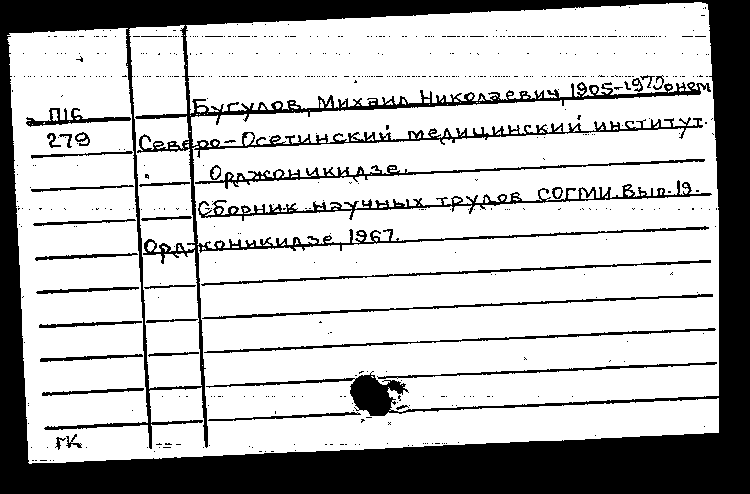 П16 Бугулов, Михаил Николаевич, 1905-1970 о нем
279 Северо-Осетинский медицинский институт.
Орджоникидзе.
Сборник научных трудов СОГМИ. Вып. 19.
Орджоникидзе, 1967.
ГК